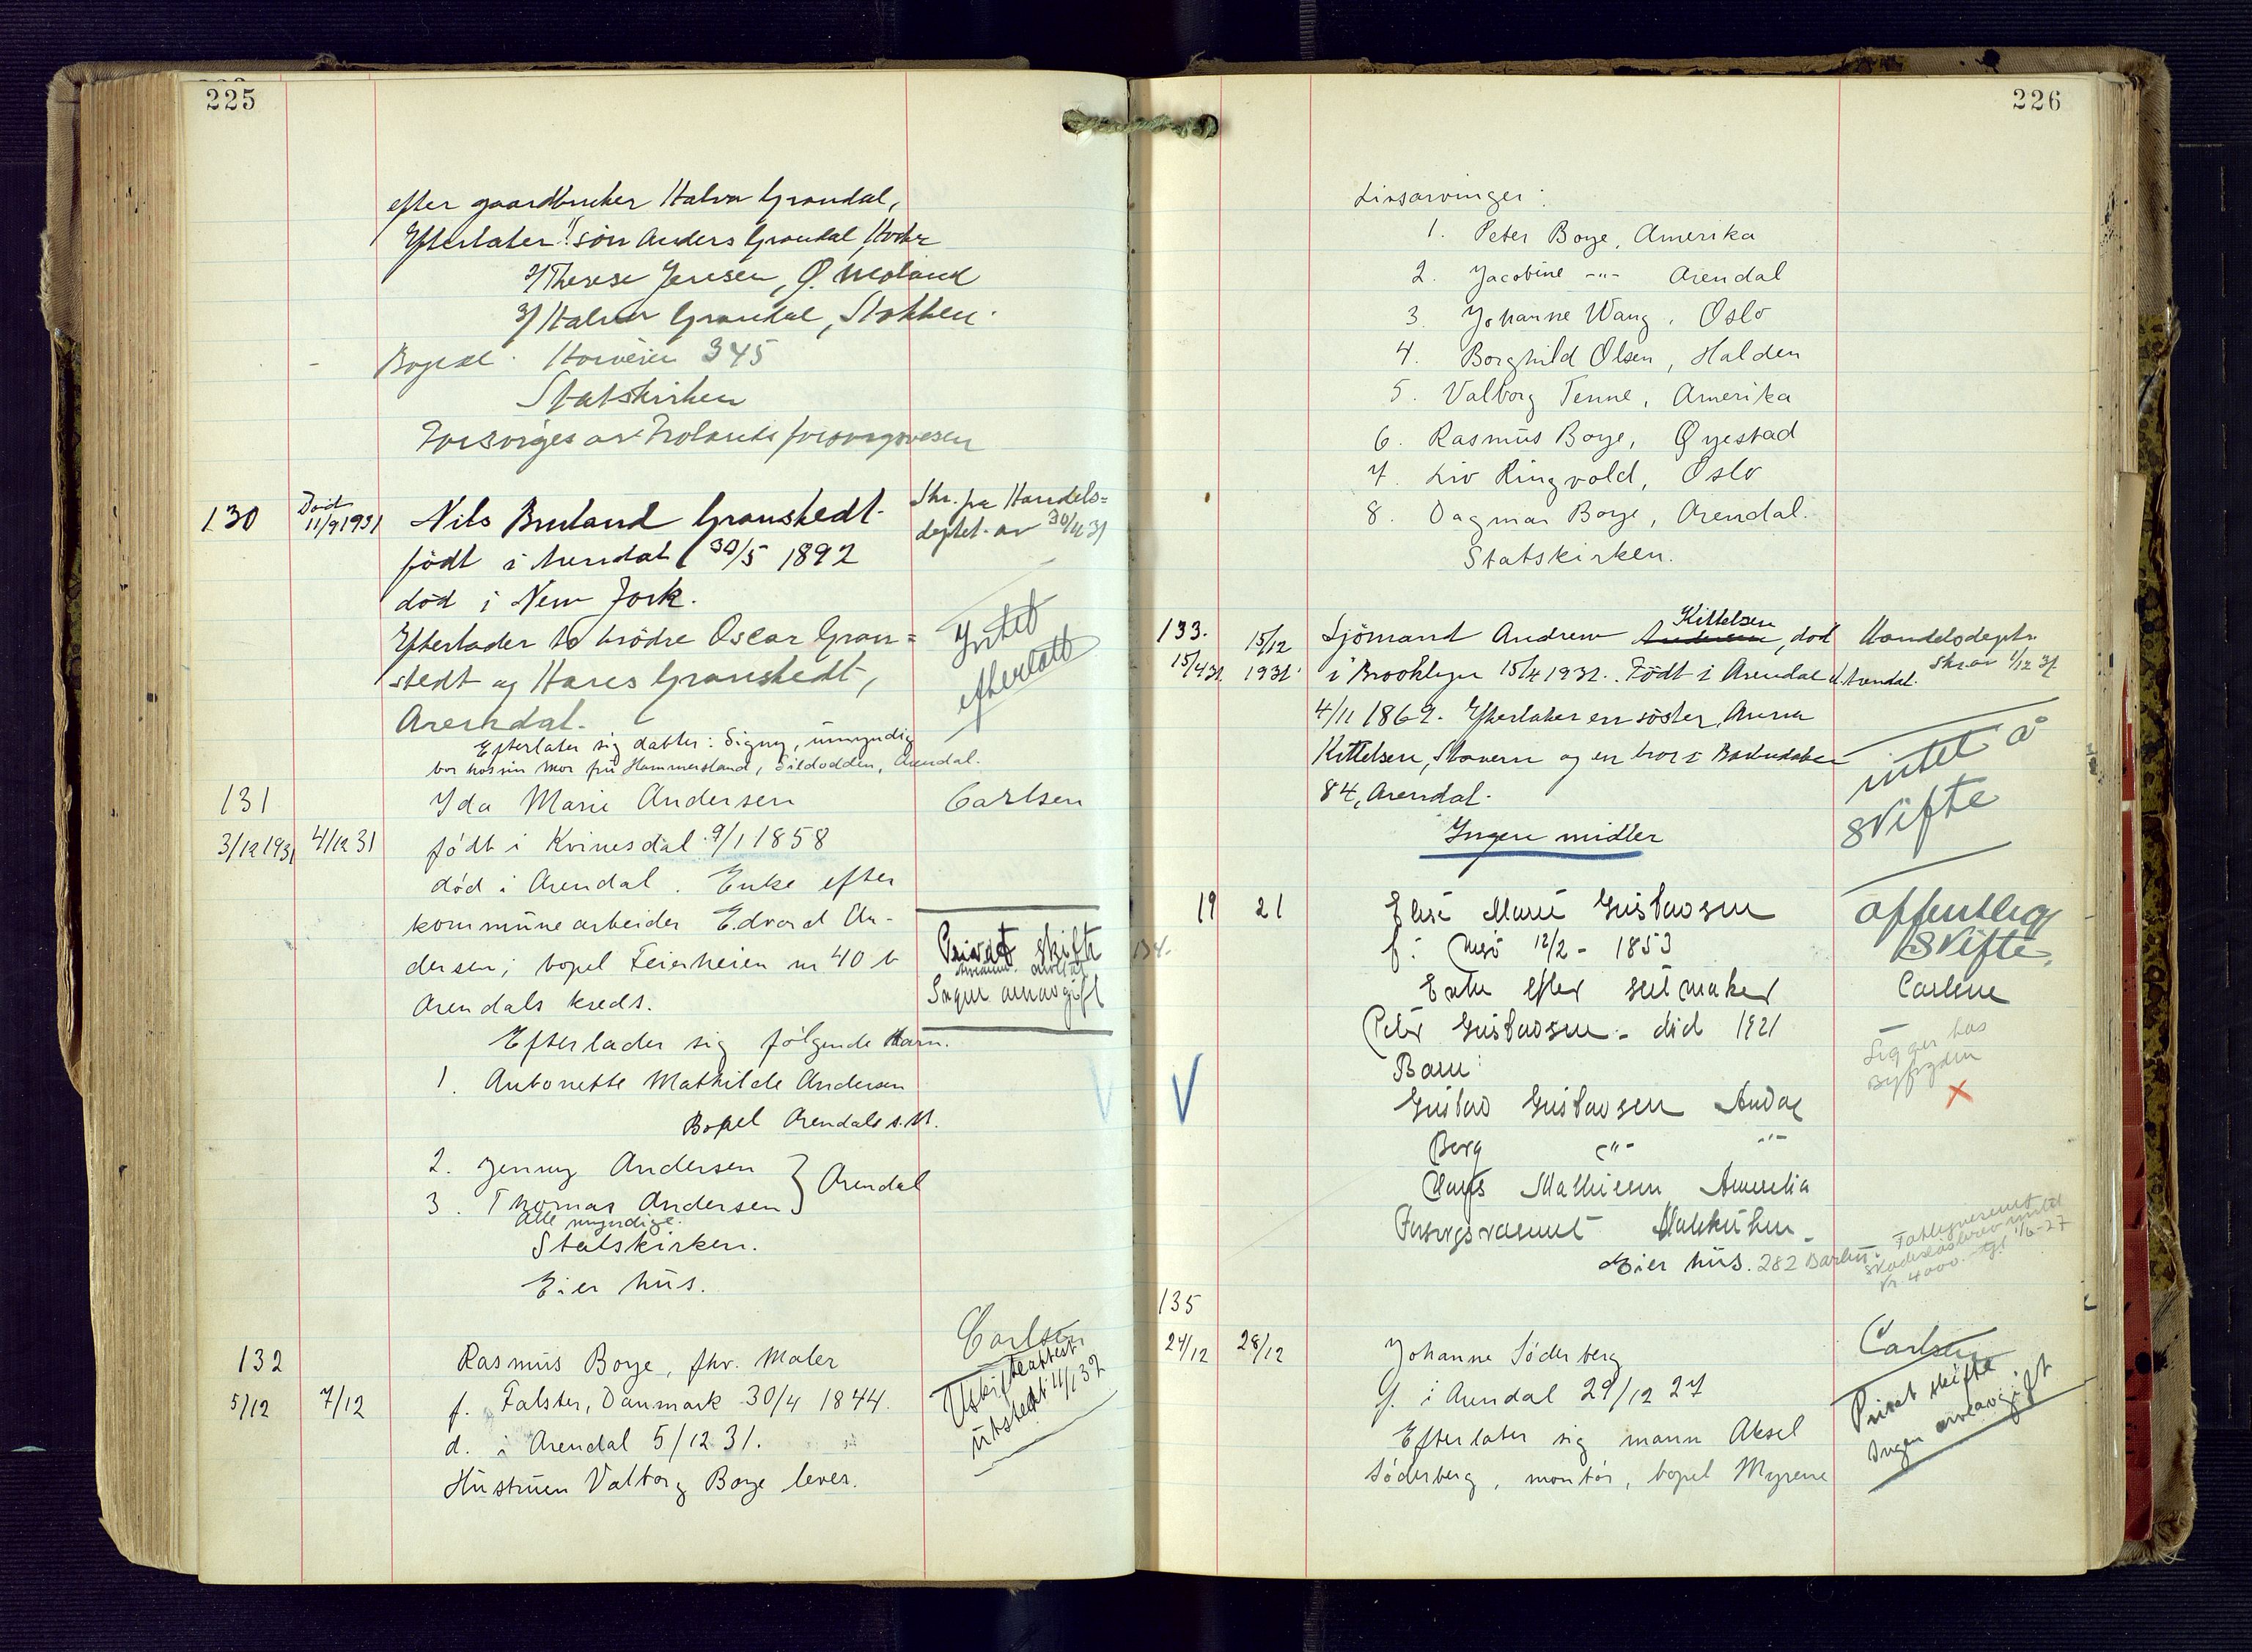 225
efter gaardbruker Halvor Grøndal,
Efterlater 1/ sön Anders Grøndal,
2/ Therese Jensen, Ø. Moland
3/ Halvor Grøndal, Stokken.
Bopæl. 345
Statskirken
Forsörges av Frolands forsorgsvesen
130 Död 11/9 1931 Nils Bruland Granstedt Skr. fra Handels=
födt i Arendal 30/5 1892 deptet. av 30/11 31
död i New York.
Efterlader to brödre Oscar Gran= Intet
stedt og Hans Granstedt, efterlatt
Arendal.
Efterlater sig datter: Signy, umyndig
bor hos sin mor fru Hammersland, Sildodden, Arendal.
131 Ida Marie Andersen Carlsen
3/12 1931 4/12 31 födt i Kvinesdal 9/1 1858
död i Arendal. Enke efter
kommunearbeider Edvard An-
dersen; bopel Feierheien nr 40 b Privat skifte
Arendals kreds. Ingen arveavgift
Efterlader sig følgende barn.
1. Antonette Mathilde Andersen
Bopel Arendals s.st.
2. Jenny Andersen } Arendal
3. Thomas Andersen
Alle myndige.
Statskirken.
Eier hus.
132 Rasmus Boye, fhv. Maler Carlsen
5/12 7/12 f. Falster, Danmark 30/4 1844. Uskifteattest
d. i Arendal 5/12 31. utstedt 11/1 32
Hustruen Valborg Boye lever.
226
Livsarvinger:
1. Peter Boye, Amerika
2. Jacobine -"- Arendal
3. Johanne Wang, Oslo
4. Borghild Olsen, Halden
5. Valborg Tenne, Amerika
6. Rasmus Boye, Øyestad
7. Liv Ringvold, Oslo
8. Dagmar Boye, Arendal.
Statskirken.
Kittelsen
133. 15/12 Sjömand Andrew Andersen, död Handelsdeptr.
15/4 31. 1931. i Brooklyn 15/4 1931. Födt i Arendal skr av 1/12 31.
4/11 1862. Efterlater en söster, Anna
Kittelsen, Stavern og en bror i Barbudalen intet å
84, Arendal. skifte
Ingen midler
19 21 Elise Marie Gustavsen offentlig
134. f. 12/2 - 1853 skifte.
Enke efter seilmaker Carlsen
Peter Gustavsen - död 1921
Barn: Ligger hos
V Gustav Gustavsen byfogden
Borg -"- -"- X
Mathiesen Amerika
Forsorgsvesenet
Eier hus. 282 Barbu.
Kr. 4000.- 1/6-27
135
24/12 28/12 Johanne Söderberg Carlsen
f. i Arendal 29/12 27 Privat skifte
Efterlater sig mann Aksel Ingen arveavgift
Söderberg, montör, bopel Myrene